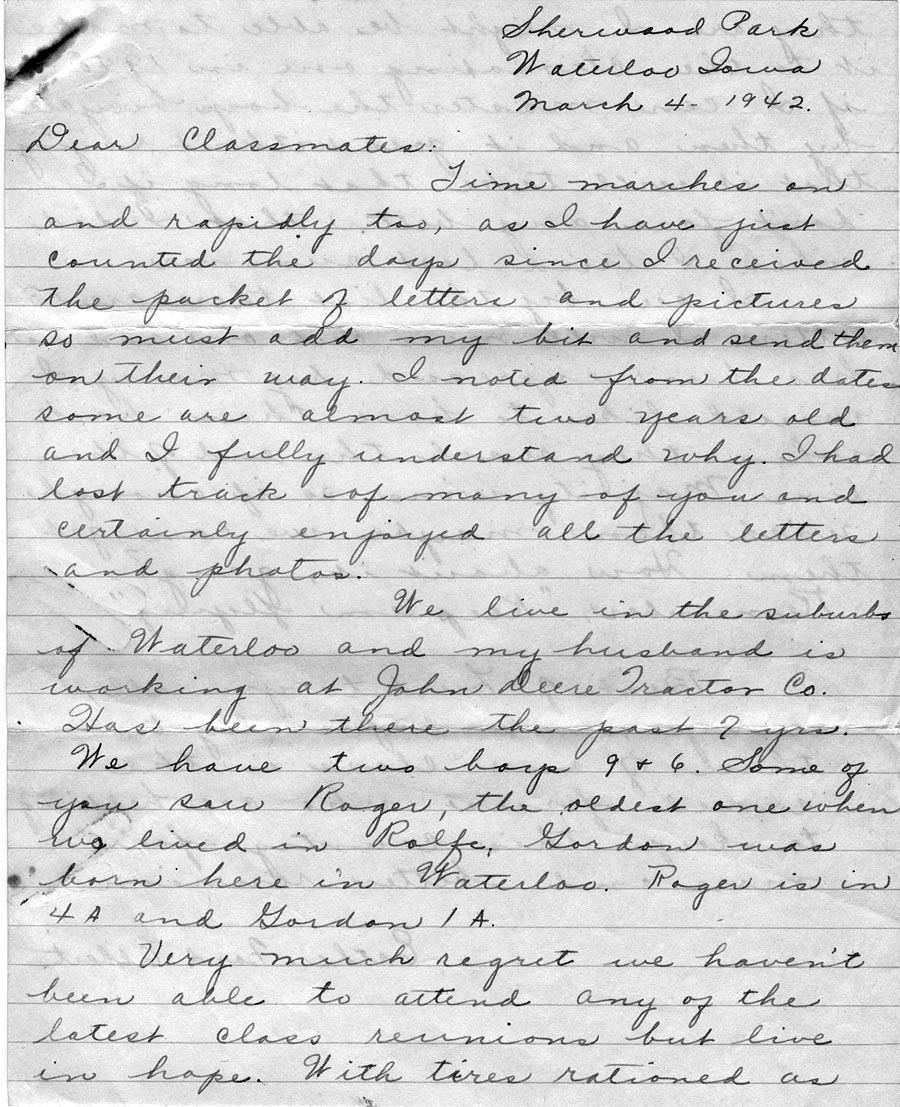 Sherwood Park
Waterloo Iowa
March 4- 1942.
Dear Classmates:
Time marches on
and rapidly too, as I have just
counted the days since I received
the packet of letters and pictures
so must add my bit and send them
on their way. I noted from the dates
some are almost two years old
and I fully understand why. I had
lost track of many of you and
certainly enjoyed all the letters
and photos.
We live in the suburbs
of Waterloo and my husband is
working at John Deere Tractor Co.
Has been there the past 7 yrs.
We have two boys 9 & 6. Some of
you saw Roger, the oldest one when
we lived in Rolfe, Gordon was
born here in Waterloo. Roger is in
4A and Gordon 1A.
Very much regret we haven't
been able to attend any of the
latest class reunions but live
in hope. With tires rationed as